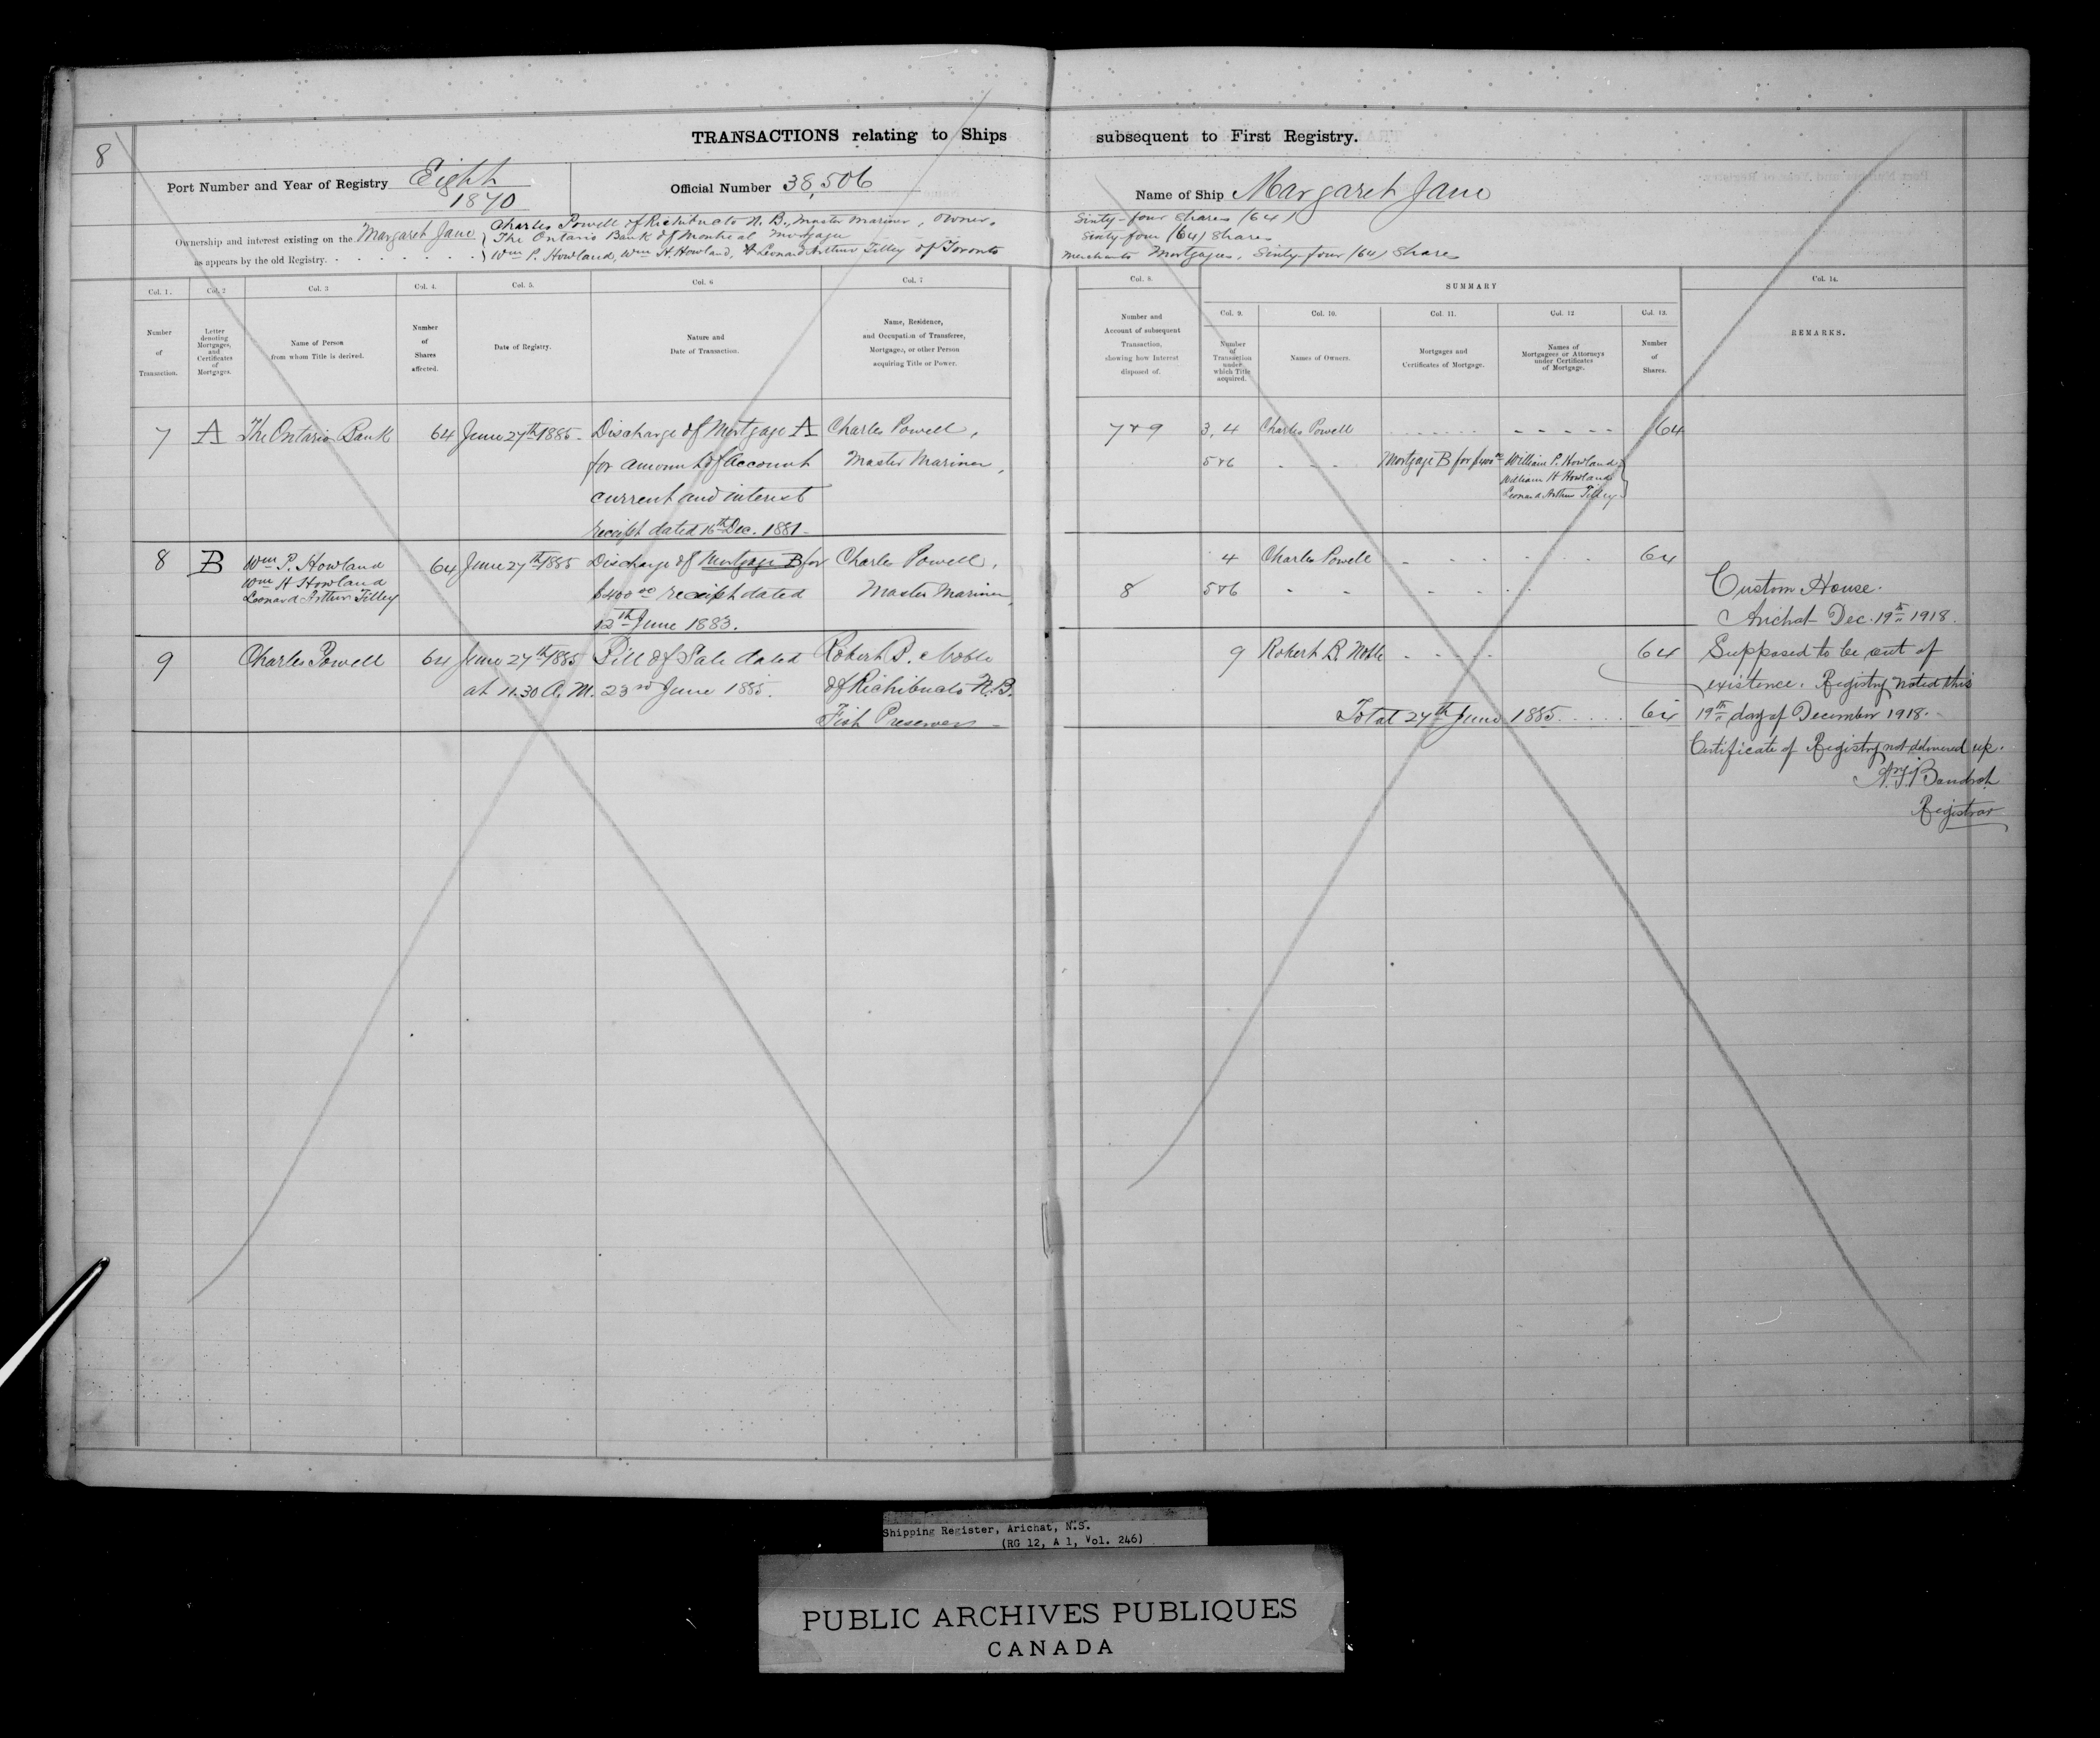 8
TRANSACTIONS relating to Ships subsequent to First Registry.
Port Number and Year of Registry Eight
1870
Official Number 38,506
Name of Ship Margaret Jane
Ownership and interest existing on the Margaret Jane
as appears by the old Registry.
Charles Powell of Richibucto N. B., Master Mariner, owner, Sixty-four Shares (64)
The Ontario Bank of Montreal Mortgage Sixty-four (64) Shares
Wm P. Howland, Wm H. Howland, & Leonard Arthur Tilley of Toronto Merchants Mortgagees, Sixty-four (64) Shares
Col. 1.
Number
of
Transaction.
Col. 2
Letter
denoting
Mortgages,
and
Certificates
of
Mortgages.
Col. 3
Name of Person
from whom Title is derived.
Col. 4.
Number
of
Shares
affected.
Col. 5.
Date of Registry.
Col. 6
Nature and
Date of Transaction.
Col. 7
Name, Residence,
and Occupation of Transferee,
Mortgagee, or other Person
acquiring Title or Power.
Col. 8.
Number and
Account of subsequent
Transaction,
showing how Interest
disposed of.
SUMMARY
Col. 9.
Number
of
Transaction
under
which Title
acquired.
Col. 10.
Names of Owners.
Col. 11.
Mortgages and
Certificates of Mortgage.
Col. 12
Names of
Mortgagees or Attorneys
under Certificates
of Mortgage.
Col. 13.
Number
of
Shares.
Col. 14.
REMARKS.
7 A The Ontario Bank 64 June 27th 1885. Discharge of Mortgage A Charles Powell,
for amount of Account Master Mariner,
current and interest
receipt dated 16th Dec. 1881.
8 B Wm P. Howland 64 June 27th 1885 Discharge of Mortgage B for Charles Powell,
Wm H Howland $400 00 receipt dated Master Mariner,
Leonard Arthur Tilley
12th June 1883.
9 Charles Powell 64 June 27th 1885 Bill of Sale dated Robert B. Noble
at 11.30 A.M. 23rd June 1885. of Richibucto N.B.
Fish Preserver
7 & 9 3, 4 Charles Powell 64
5 & 6 Mortgage B for $400 00 William P. Howland
William H Howland
Leonard Arthur Tilley
4 Charles Powell 64
8 5 & 6
9 Robert B. Noble 64
Total 27th June 1885 64
Custom House.
Arichat Dec. 19th 1918.
Supposed to be out of
existence. Registry noted this
19th day of December 1918.
Certificate of Registry not delivered up.
Registrar
Shipping Register, Arichat, N.S.
(RG 12, A 1, Vol. 246)
PUBLIC ARCHIVES PUBLIQUES
CANADA